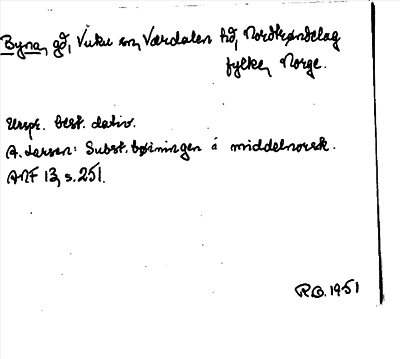 Byna, gd, Vuku sn, Værdalen hd, Nordtrøndelag
fylke, Norge.
Urspr. best. dativ.
A. Larsen: Subst. bøiningen i middelnorsk.
ANF 13, s. 251.
1951